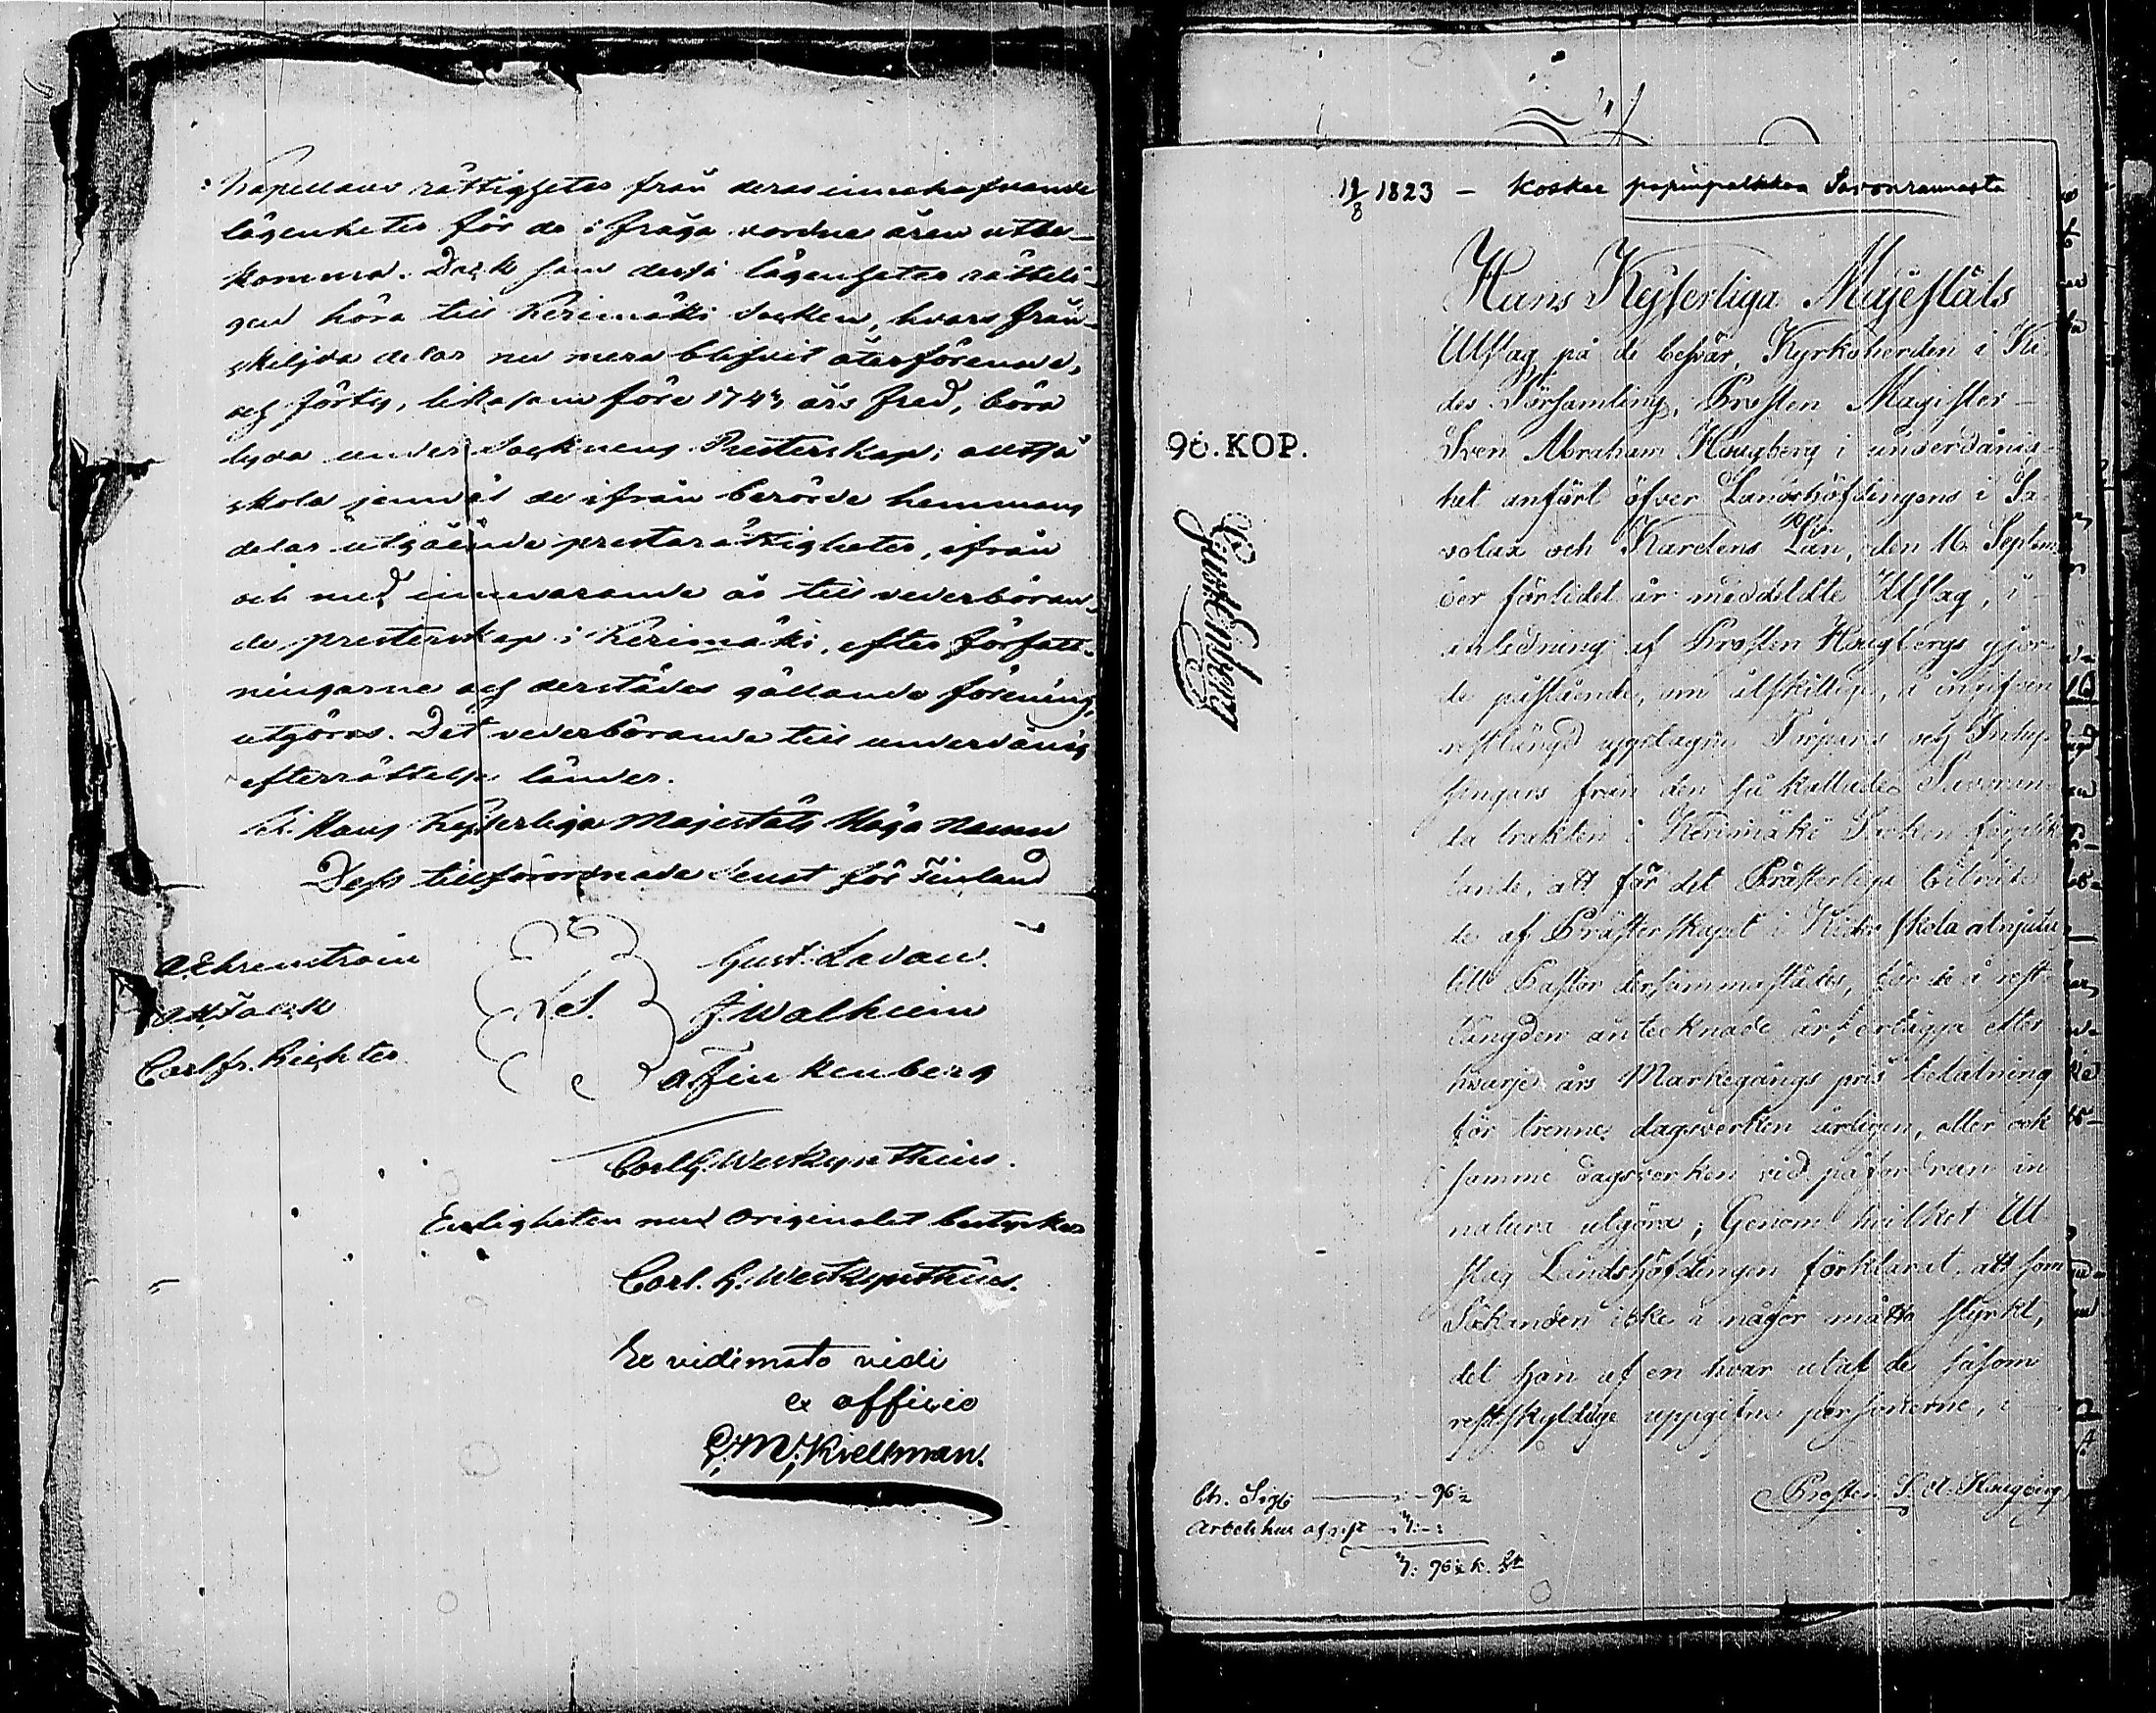 Kapellans rättigheter från deras innehafvande
lägenheter för de i fråga vordne åren utbe-
komma. Dock som dessa lägenheter rätteli-
gen höra till Kerimäki Socken, hvars från-
skiljda delar nu mera blifvit återförenade,
och förty, likasom före 1743 års fred, böra
lyda under Socknens Presterskap; alltså
skola jemväl de ifrån berörde hemmans
delar utgående prestarättigheter, ifrån
och med innevarande år till vederböran-
de presterskap i Kerimäki, efter författ-
ningarne och derstädes gällande förening,
utgöras. Det vederbörande till underdånig
efterrättelse länder.
I Hans Kejserliga Majestäts Höga Namn
Dess tillförordnade Senat för Finland
A. Ehrenström
Gust. Ladau.
O. H. Falck
L. S.
J. Walheim
Carl Fr. Richter
A Finkenberg
Carl G. Westzynthius.
Enligheten med Originalet bestyrker
Carl. G. Westzynthius.
Ex vidimato vidi
ex officio
Kiellman.
19/8 1823 - Koskee papinpalkkaa Savonrannasta
Hans Kejserliga Majestäts
Utslag på de besvär, Kyrkoherden i Ki-
des Församling, Prosten Magister
Sven Abraham Hougberg i underdånig-
het anfört öfver Landshöfdingens i Sa-
volax och Karelens Län, den 16 Septem-
90. KOP.
ber förlidet år meddeldte Utslag, i
anledning af Prosten Hougbergs gjor-
de påstående, om åtskillige, å ingifven
restlängd upptagne Torpares och Inhys-
hingars från den så kallade Savonran-
da trakten i Kerimäki Socken förplik-
tande, att för det Prästerliga biträde
de af Prästerskapet i Kides skola åtnjutit
till Pastor dersammastädes, för de å rest-
längden antecknade år, erlägga efter
hvarje års Markegångs pris betalning
för trenne dagsverken årligen, eller ock
samme dagsverken vid påfordran in
natura utgöra; Genom hvilket Ut-
slag Landshöfdingen förklarat, att som
Sökanden icke å någor måtto styrkt,
det han af en hvar utaf de såsom
restskyldige uppgifne personerne, i
Prosten S. A. Hougberg
Ch. Sigt - 96½
Arbetshus afgift